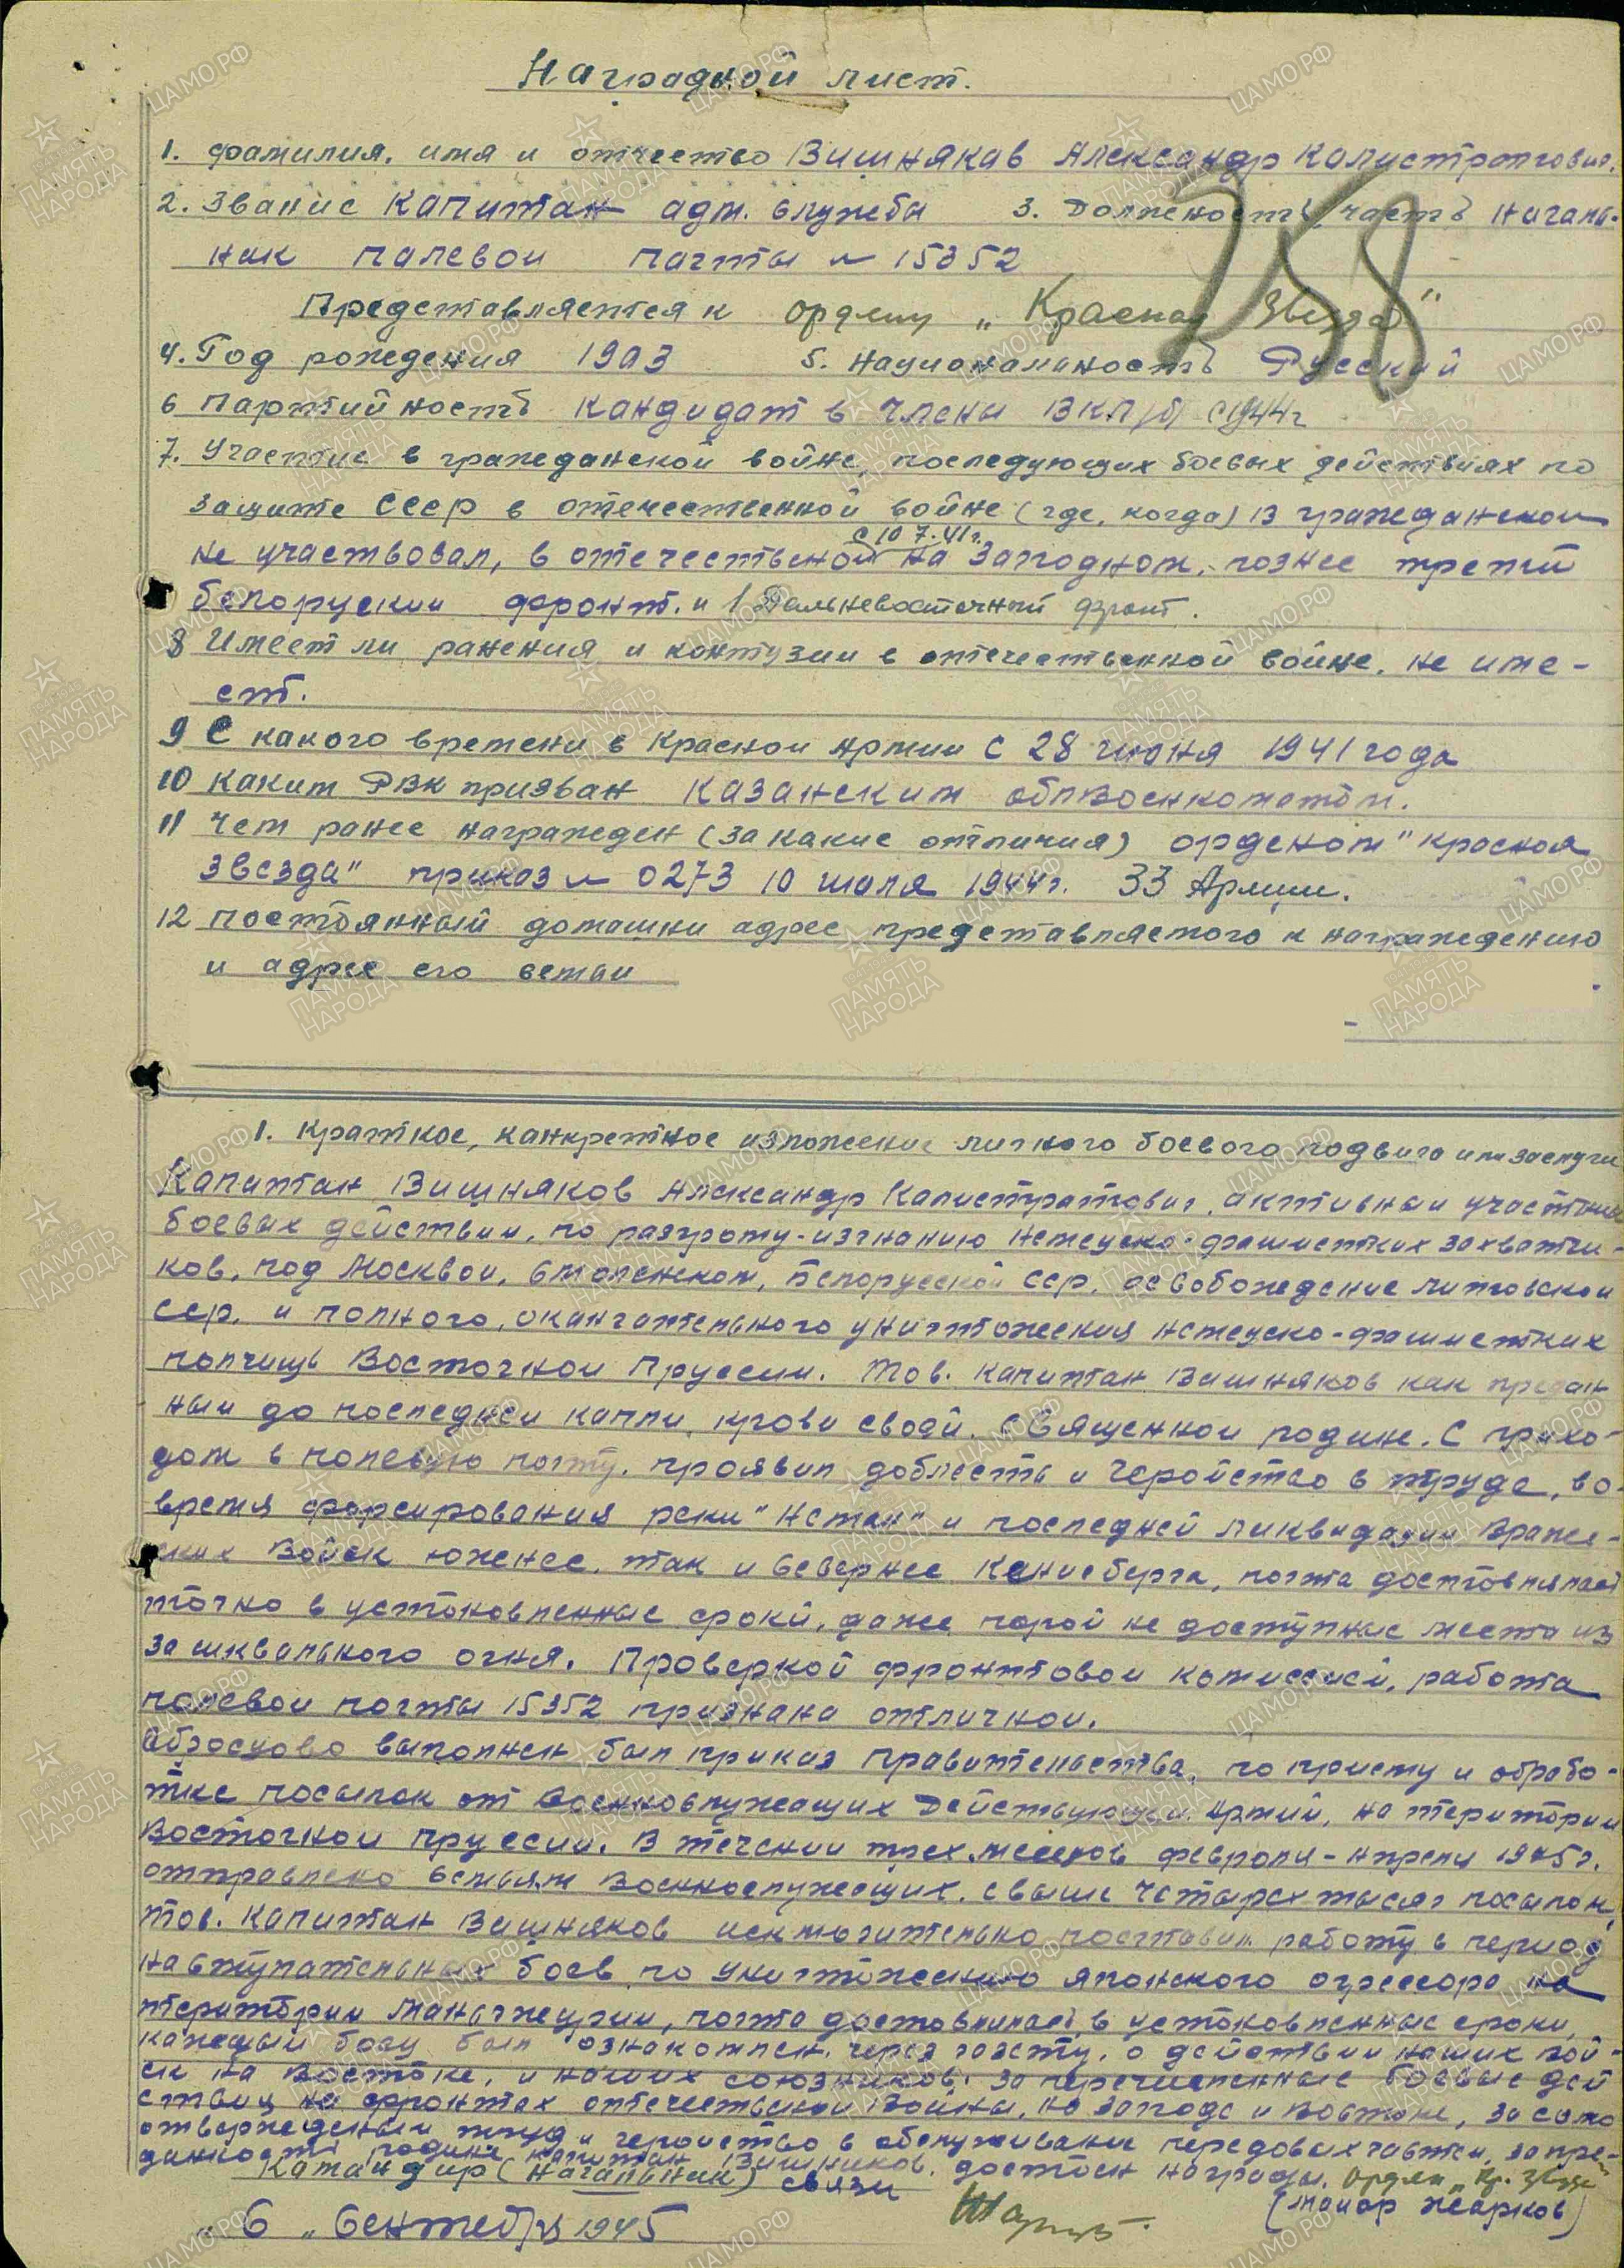 Наградной лист.
1. фамилия, имя и отчество Вишнякав Александр Калистратович.
2. Звание Капитан адм. службы 3. Должность, часть началь-
ник палевой пачты № 15352
Представляется к ордену „Красная Звезда"
258
4. Год рождения 1903 5. Национальность Русский
6 Партийность кандидат в члены ВКП/б/ с 1944г
7. Участие в гражданской войне, последующих боевых действиях по
защите СССР в отечественной войне (где, когда) в гражданской
с 10 7. 41г.
не участвовал, в отечественой на Западном, познее третий
белоруский фронт. и 1 Дальневосточный фронт.
8 Имеет ли ранения и контузии в отечественной войне. не име-
ет.
9 С какого времени в Красной Армии с 28 июня 1941 года
10 каким РВК призван Казанским облвоенкоматом.
11 чем ранее награжден (за какие отличия) орденом "красная
звезда" приказ № 0273 10 июля 1944г. 33 Армии.
12 постоянный домашни адрес представляемого к награждению
и адрес его семьи
1. Краткое, канкретное изложение личного боевого подвига или заслуги
Капитан Вишняков Александр Калистратович, активный участник
боевых действии, по разгрому-изгнанию немецко-фашистких захватчи-
ков, под Москвой, Смоленском, Белорусской ССР, освобождение литовской
сср. и полного, оканчательного уничтожения немецко-фашистких
полчищь Восточной Пруссии. Тов. Капитан Вишняков как предан
ный до последней капли крови своей, Священной родине. С прихо-
дом в полевую почту, проявил доблесть и геройство в труде, во-
время форсирования реки "Неман" и последней ликвидации враже-
ских войск южнее, так и севернее Кенисберга, почта доставлялась
точно в установленные сроки, даже порой не доступные места из
за шквального огня. Проверкой фронтовой комиссией, работа
полевой почты 15352 признана отличной.
Образцово выполнен был приказ Правительства, по приему и обрабо-
тке посылок от военнослужащих Действующей Армии, на територии
Восточной Пруссии. В течении трех месяцов февроля-апреля 1945г.
отправлено семьям военнослужащих, свыше четырех тысяч посылок,
тов. Капитан Вишняков исключительно поставил работу в период
наступательных боев по уничтожению японского огрессора на
територии Маньчжурии, почта доставлялась в установленные сроки,
каждый боец был ознакомлен, через газету, о действии наших вой-
ск на востоке, и наших союзников. за перечисленные боевые дей
ствия на фронтах отечественой войны, на западе и востоке, за само
отверженный труд и геройство в обслуживание передовых частей, за пре-
данность родине капитан Вишняков, достоен награды. орден „Кр. Звезда"
Командир (Начальник) связи
(майор Жарков)
„6„ Сентября 1945
ЦАМО.РФ
ПАМЯТЬ НАРОДА